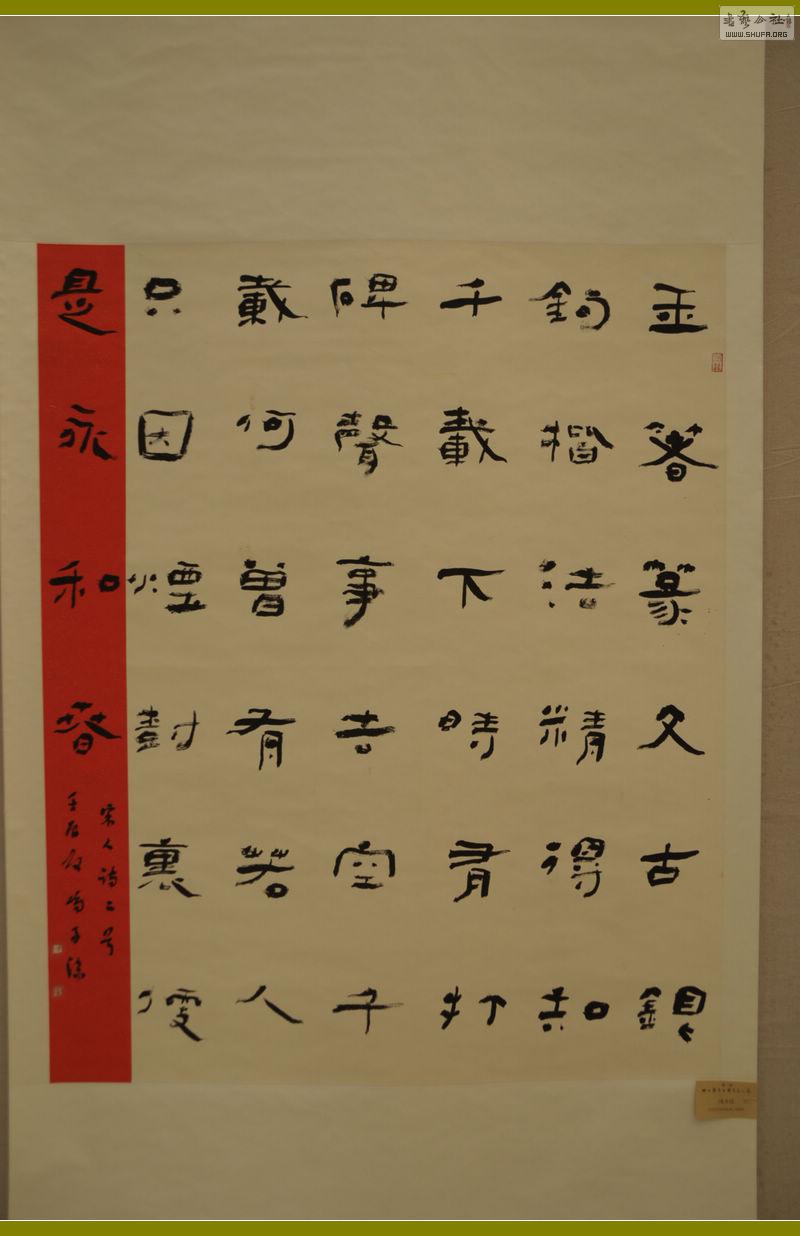 玉箸篆文古銀
鈎楷法精得知
千載下時有打
碑聲事去空千
載何曾有若人
只因煙封裏便
是永和春
宋人詩二首
壬辰
書藝公社
WWW.SHUFA.ORG